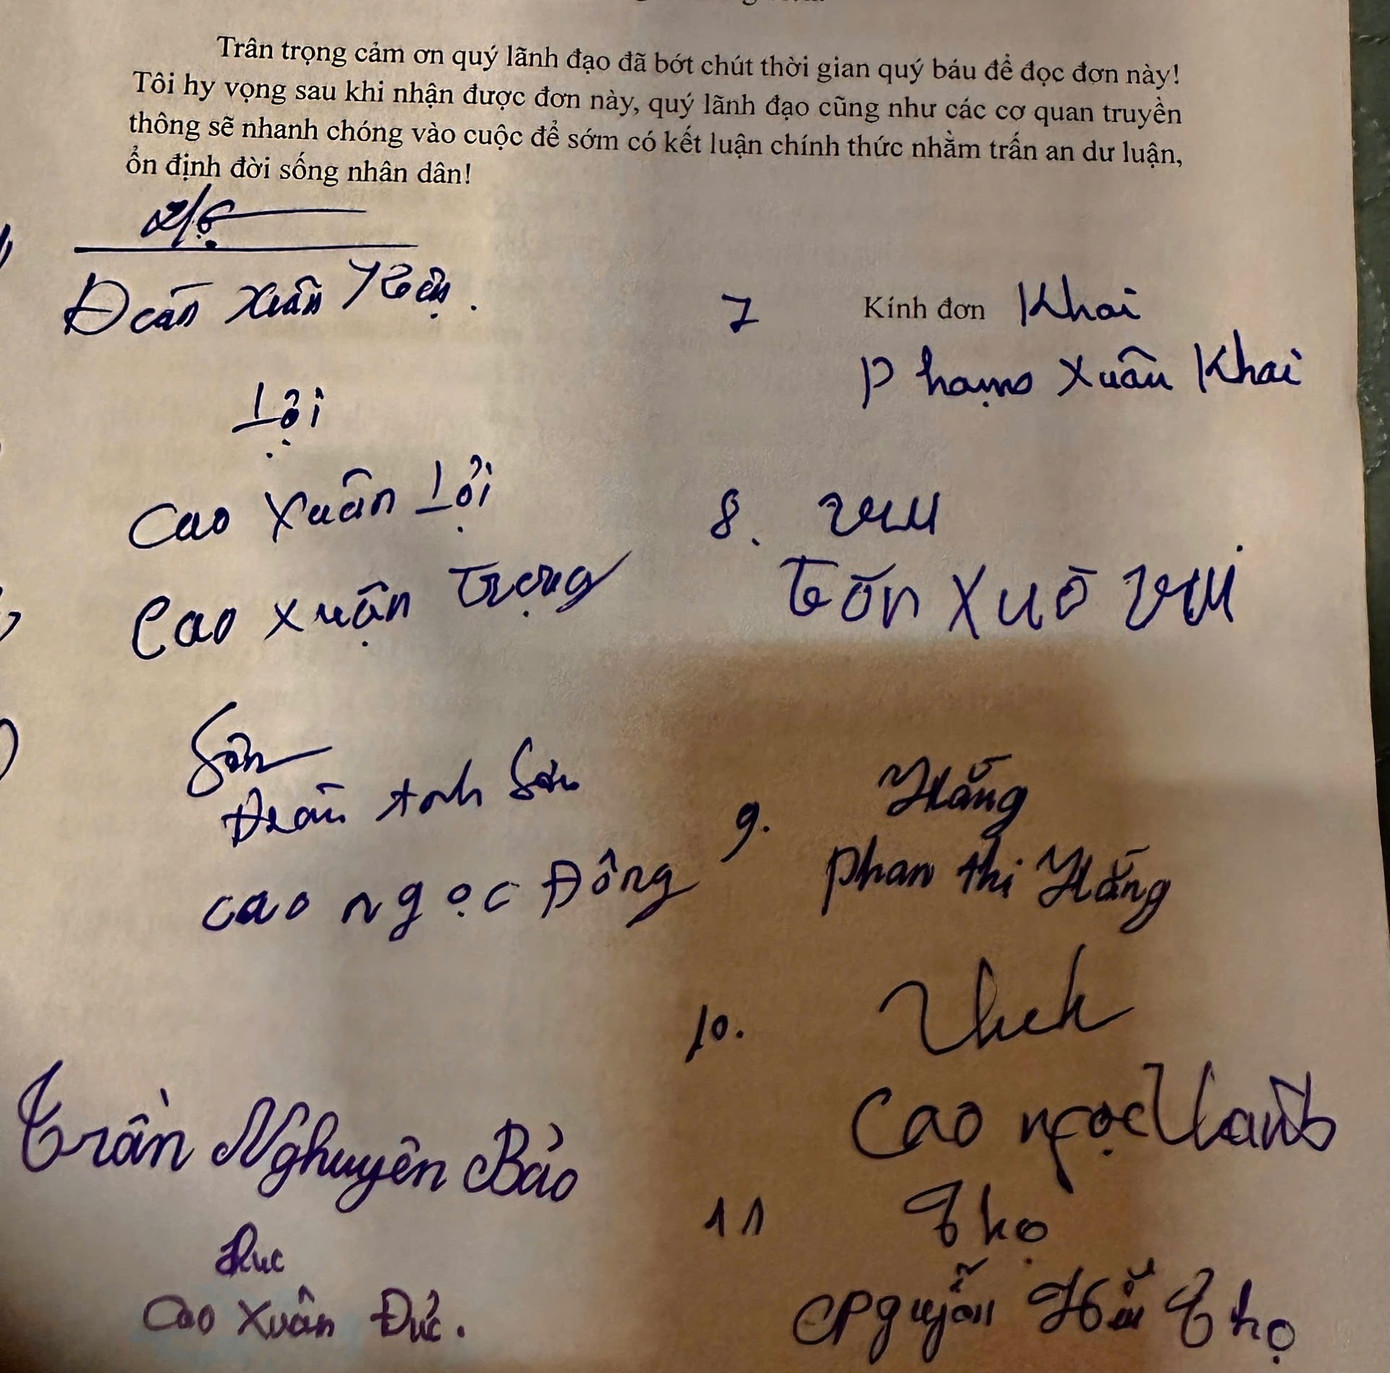 Trân trọng cảm ơn quý lãnh đạo đã bớt chút thời gian quý báu để đọc đơn này!
Tôi hy vọng sau khi nhận được đơn này, quý lãnh đạo cũng như các cơ quan truyền
thông sẽ nhanh chóng vào cuộc để sớm có kết luận chính thức nhằm trấn an dư luận,
ổn định đời sống nhân dân!
Xuân
Lợi
Cao Xuân Lợi
Cao Xuân Trọng
Sơn
Anh Sơn
Cao Ngọc Đông
Trần Nghuyên Bảo
Đưc
Cao Xuân Đức.
7 Kính đơn Khai
Phạm Xuân Khai
8. Vui
Xuâ Vui
9. Hằng
Phan thi Hằng
10.
Cao ngọc
11 Thọ
Thọ